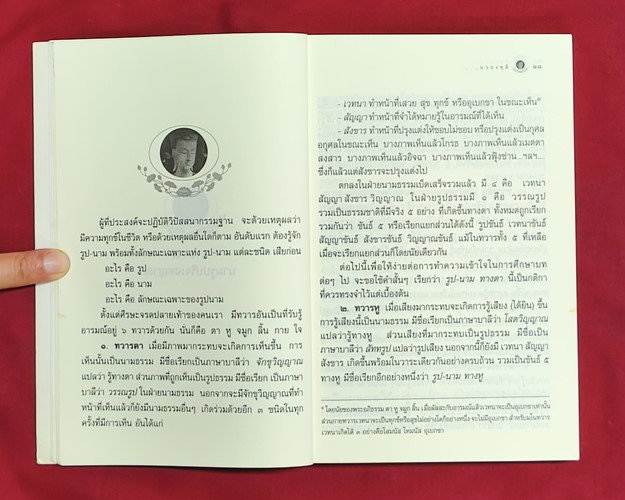 ผู้ที่ประสงค์จะปฏิบัติวิปัสสนากรรมฐาน จะด้วยเหตุผลว่า
มีความทุกข์ในชีวิต หรือด้วยเหตุผลอื่นใดก็ตาม อันดับแรก ต้องรู้จัก
รูป-นาม พร้อมทั้งลักษณะเฉพาะแห่ง รูป-นาม แต่ละชนิด เสียก่อน
อะไร คือ รูป
อะไร คือ นาม
อะไร คือ ลักษณะเฉพาะของรูปนาม
ตั้งแต่ศีรษะจรดปลายเท้าของคนเรา มีทวารอันเป็นที่รับรู้
อารมณ์อยู่ ๖ ทวารด้วยกัน นั่นก็คือ ตา หู จมูก ลิ้น กาย ใจ
๑. ทวารตา เมื่อมีภาพมากระทบจะเกิดการเห็นขึ้น การ
เห็นนั้นเป็นนามธรรม มีชื่อเรียกเป็นภาษาบาลีว่า จักขุวิญญาณ
แปลว่า รู้ทางตา ส่วนภาพที่ถูกเห็นเป็นรูปธรรม มีชื่อเรียก เป็นภาษา
บาลีว่า วรรณรูป ในฝ่ายนามธรรม นอกจากจะมีจักขุวิญญาณที่ทำ
หน้าที่เห็นแล้วก็ยังมีนามธรรมอื่นๆ เกิดร่วมด้วยอีก ๓ ชนิดในทุก
ครั้งที่มีการเห็น อันได้แก่
๑๑
- เวทนา ทำหน้าที่เสวย สุข ทุกข์ หรืออุเบกขา ในขณะเห็น*
- สัญญา ทำหน้าที่จำได้หมายรู้ในอารมณ์ที่ได้เห็น
- สังขาร ทำหน้าที่ปรุงแต่งให้ชอบไม่ชอบ หรือปรุงแต่งเป็นกุศล
อกุศลในขณะเห็น บางภาพเห็นแล้วโกรธ บางภาพเห็นแล้วเมตตา
สงสาร บางภาพเห็นแล้วอิจฉา บางภาพเห็นแล้วฟุ้งซ่าน...ฯลฯ...
ซึ่งก็แล้วแต่สังขารจะปรุงแต่งไป
ตกลงในฝ่ายนามธรรมเบ็ดเสร็จรวมแล้ว มี ๔ คือ เวทนา
สัญญา สังขาร วิญญาณ ในฝ่ายรูปธรรมมี ๑ คือ วรรณรูป
รวมเป็นธรรมชาติที่มีจริง ๕ อย่าง ที่เกิดขึ้นทางตา ทั้งหมดถูกเรียก
รวมกันว่า ขันธ์ ๕ หรือเรียกแยกส่วนได้ดังนี้ รูปขันธ์ เวทนาขันธ์
สัญญาขันธ์ สังขารขันธ์ วิญญาณขันธ์ แม้ในทวารทั้ง ๕ ที่เหลือ
เมื่อจะเรียกแยกส่วนก็โดยนัยเดียวกัน
ต่อไปนี้เพื่อให้ง่ายต่อการทำความเข้าใจในการศึกษาบท
ต่อๆ ไป จะขอใช้คำสั้นๆ เรียกว่า รูป-นาม ทางตา นี้เป็นกติกา
ที่ควรทรงจำไว้แต่เบื้องต้น
๒. ทวารหู เมื่อเสียงมากระทบจะเกิดการรู้เสียง (ได้ยิน) ขึ้น
การรู้เสียงนี้เป็นนามธรรม มีชื่อเรียกเป็นภาษาบาลีว่า โสตวิญญาณ
แปลว่ารู้ทางหู ส่วนเสียงที่มากระทบเป็นรูปธรรม มีชื่อเป็น
ภาษาบาลีว่า สัททรูป แปลว่ารูปเสียง นอกจากนี้ก็ยังมี เวทนา สัญญา
สังขาร เกิดขึ้นพร้อมในวาระเดียวกันอย่างครบถ้วน รวมเป็นขันธ์ ๕
ทางหู มีชื่อเรียกอีกอย่างหนึ่งว่า รูป-นาม ทางหู
* โดยนัยของพระอภิธรรม ตา หู จมูก ลิ้น เมื่อผัสสะกับอารมณ์แล้วเวทนาจะเป็นอุเบกขาเท่านั้น
ส่วนกายทวารเวทนาจะเป็นทุกข์หรือสุขไม่อย่างใดก็อย่างหนึ่ง จะไม่มีอุเบกขา สำหรับมโนทวาร
เวทนาเกิดได้ ๓ อย่างคือโสมนัส โทมนัส อุเบกขา